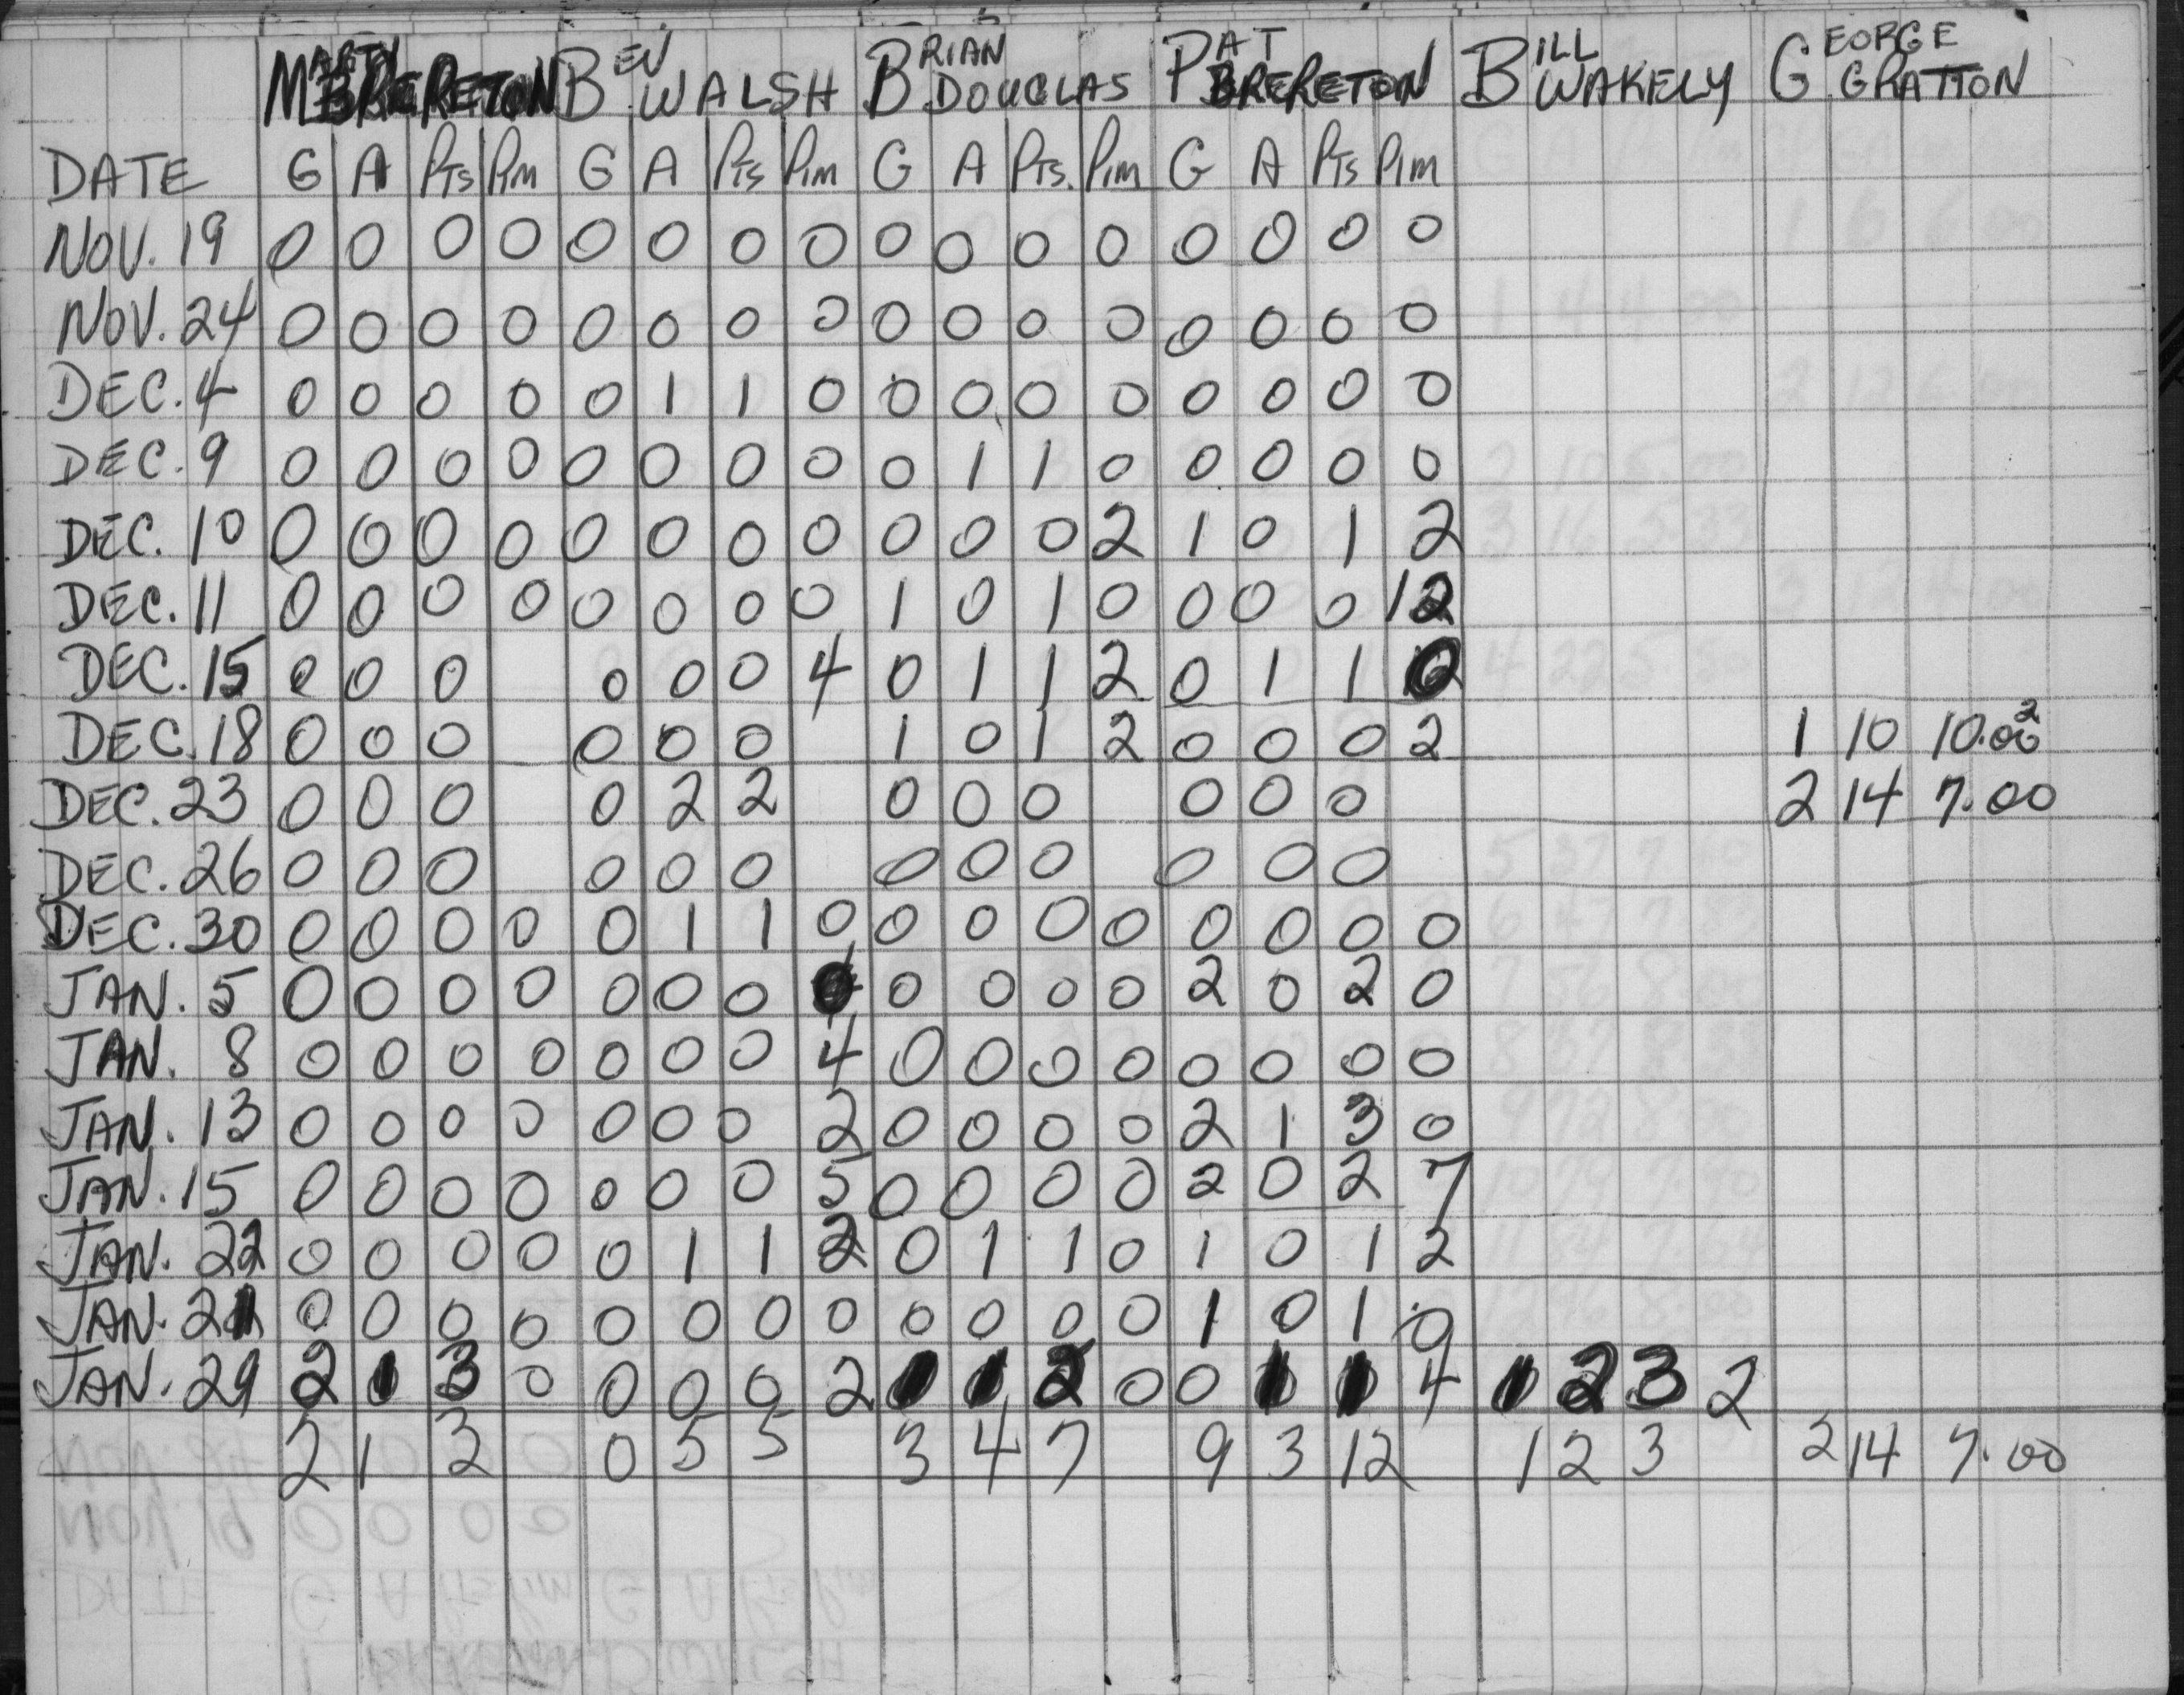 MARTY BRERETON BEV WALSH BRIAN DOUGLAS PAT BRERETON BILL WAKELY GEORGE GRATTON
DATE G A PTS PIM G A PTS PIM G A PTS. PIM G A PTS PIM
NOV. 19 0 0 0 0 0 0 0 0 0 0 0 0 0 0 0 0
NOV. 24 0 0 0 0 0 0 0 0 0 0 0 0 0 0 0 0
DEC. 4 0 0 0 0 0 1 1 0 0 0 0 0 0 0 0 0
DEC. 9 0 0 0 0 0 0 0 0 0 1 1 0 0 0 0 0
DEC. 10 0 0 0 0 0 0 0 0 0 0 0 2 1 0 1 2
DEC. 11 0 0 0 0 0 0 0 0 1 0 1 0 0 0 0 12
DEC. 15 0 0 0 0 0 0 4 0 1 1 2 0 1 1
DEC. 18 0 0 0 0 0 0 1 0 1 2 0 0 0 2 1 10 10.00 2
DEC. 23 0 0 0 0 2 2 0 0 0 0 0 0 2 14 7.00
DEC. 26 0 0 0 0 0 0 0 0 0 0 0 0
DEC. 30 0 0 0 0 0 1 1 0 0 0 0 0 0 0 0 0
JAN. 5 0 0 0 0 0 0 0 0 0 0 0 2 0 2 0
JAN. 8 0 0 0 0 0 0 0 4 0 0 0 0 0 0 0 0
JAN. 13 0 0 0 0 0 0 0 2 0 0 0 0 2 1 3 0
JAN. 15 0 0 0 0 0 0 0 5 0 0 0 0 2 0 2 7
JAN. 22 0 0 0 0 0 1 1 2 0 1 1 0 1 0 1 2
JAN. 0 0 0 0 0 0 0 0 0 0 0 0 1 0 1 0
JAN. 29 2 1 3 0 0 0 0 2 1 1 2 0 0 1 1 4 1 2 3 2
2 1 2 0 5 5 3 4 7 9 3 12 1 2 3 2 14 7.00